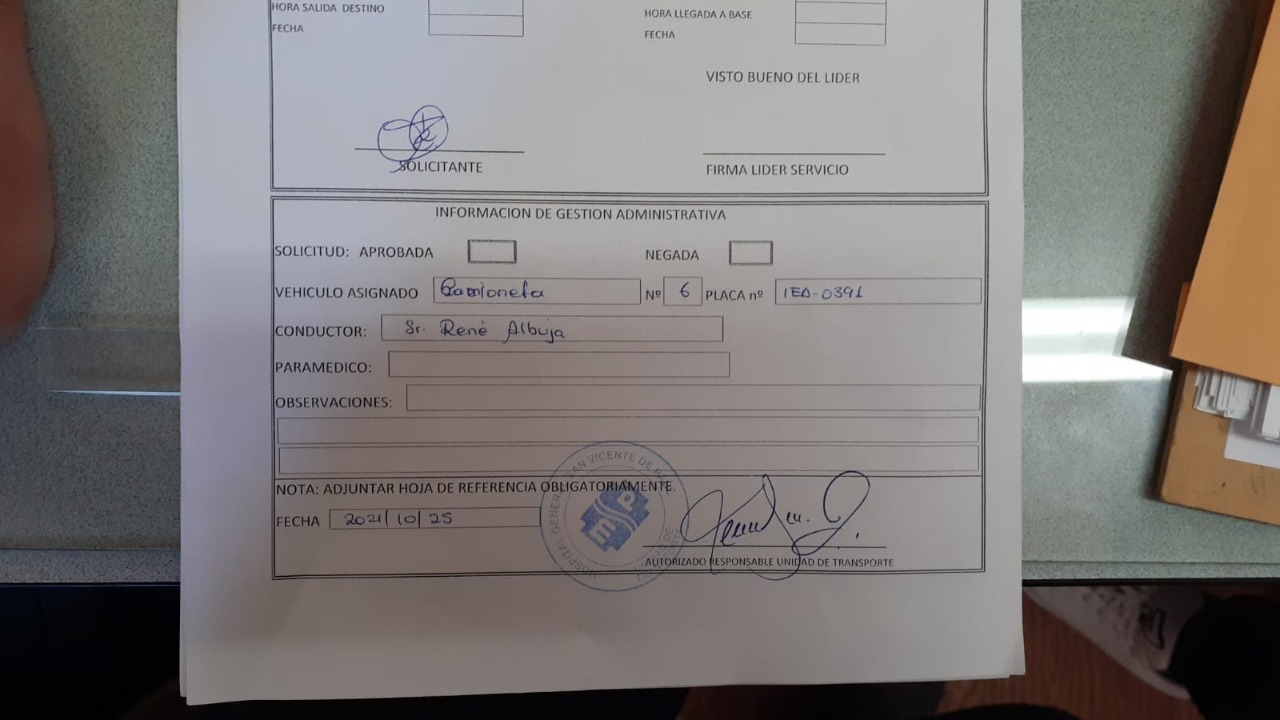 HORA SALIDA DESTINO
HORA LLEGADA A BASE
FECHA
FECHA
VISTO BUENO DEL LIDER
SOLICITANTE
FIRMA LIDER SERVICIO
INFORMACION DE GESTION ADMINISTRATIVA
SOLICITUD: APROBADA NEGADA
VEHICULO ASIGNADO Camioneta Nº 6 PLACA nº IEA-0391
CONDUCTOR: Sr. René Albuja
PARAMEDICO:
OBSERVACIONES:
NOTA: ADJUNTAR HOJA DE REFERENCIA OBLIGATORIAMENTE.
FECHA 2021/10/25
HOSPITAL GENERAL SAN VICENTE DE PAUL
MSP
AUTORIZADO RESPONSABLE UNIDAD DE TRANSPORTE